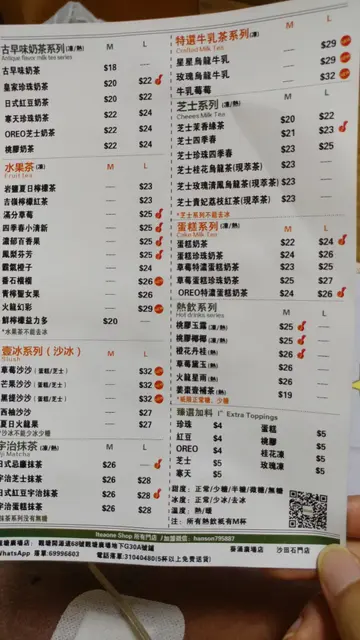 古早味奶茶系列(凍/熱) M L
Antique flavor milk tea series
古早味奶茶 $18 —
皇家珍珠奶茶 $20 $22
日式紅豆奶茶 $20 $22
寒天珍珠奶茶 $22 $24
OREO芝士奶茶 $22 $24
桃膠奶茶 $22 $24
水果茶(凍) M L
Fruit tea
岩鹽夏日檸檬茶 — $23
吉蔗檸檬紅茶 — $23
滿分草莓 — $25
四季春小清新 — $25
濃郁百香果 — $25
鳳梨芬芳 — $25
霸氣橙子 — $24
番石榴榴 — $26
青檸聖女果 — $26
火龍幻影 — $29
鮮檸檬益力多 $20 —
*水果茶不能去冰
壹冰系列(沙冰) M L
Slush
草莓沙沙(蛋糕/芝士) — $32
芒果沙沙(蛋糕/芝士) — $32
黑提沙沙(蛋糕/芝士) — $32
西柚沙沙 — $27
夏日火龍果 — $27
*沙冰不能少冰少糖
宇治抹茶(凍/熱) M L
Uji Matcha
日式品嚴抹茶 $26 —
宇治芝士抹茶 $26 $28
日式紅豆宇治抹茶 $26 $28
宇治蛋糕抹茶 $26 $28
抹茶系列沒有無糖
特選牛乳茶系列(凍) M L
Crafted Milk Tea
星星烏龍牛乳 — $29
玫瑰烏龍牛乳 — $29
牛乳莓莓 — $32
芝士系列(凍) M L
Cheese Milk Tea
芝士茉香綠茶 $20 $22
芝士四季春 $21 $23
芝士珍珠四季春 $23 $25
芝士桂花烏龍茶(現萃茶) $23
芝士玫瑰清鳳烏龍茶(現萃茶) $23
芝士貴妃荔枝紅茶(現萃茶) $23
*芝士系列不能去冰
蛋糕系列(凍) M L
Cake Milk Tea
蛋糕奶茶 $22 $24
蛋糕珍珠奶茶 $24 $26
草莓特濃蛋糕奶茶 $23 $25
草莓蛋糕珍珠奶茶 $25 $27
OREO特濃蛋糕奶茶 $24 $26
熱飲系列 M L
Hot drinks series
桃膠玉露(凍/熱) $25 —
桃膠椰椰(凍/熱) $25 —
橙花丹桂(凍/熱) $26 —
草莓黛玉 $26 —
火龍星雨 $26 —
姜棗壹補茶(熱) $19
*祇限正常糖、少糖
臻選加料 1° Extra Toppings
珍珠 $4 蛋糕 $5
紅豆 $4 桃膠 $5
OREO $4 桂花凍 $5
芝士 $5 玫瑰凍 $5
寒天 $5
甜度:正常/少糖/半糖/微糖/無糖
冰度:正常/少冰/去冰
溫度:熱/暖
注:所有熱飲祇有M杯
Iteaone Shop 所有門店 / 加盟微信:hanson795887
觀塘廣場店:觀塘開源道68號觀塘廣場地下G30A號舖 葵涌廣場店 沙田石門店
WhatsApp 落單:69996603 電話落單:31040480(5杯以上免費送貨)